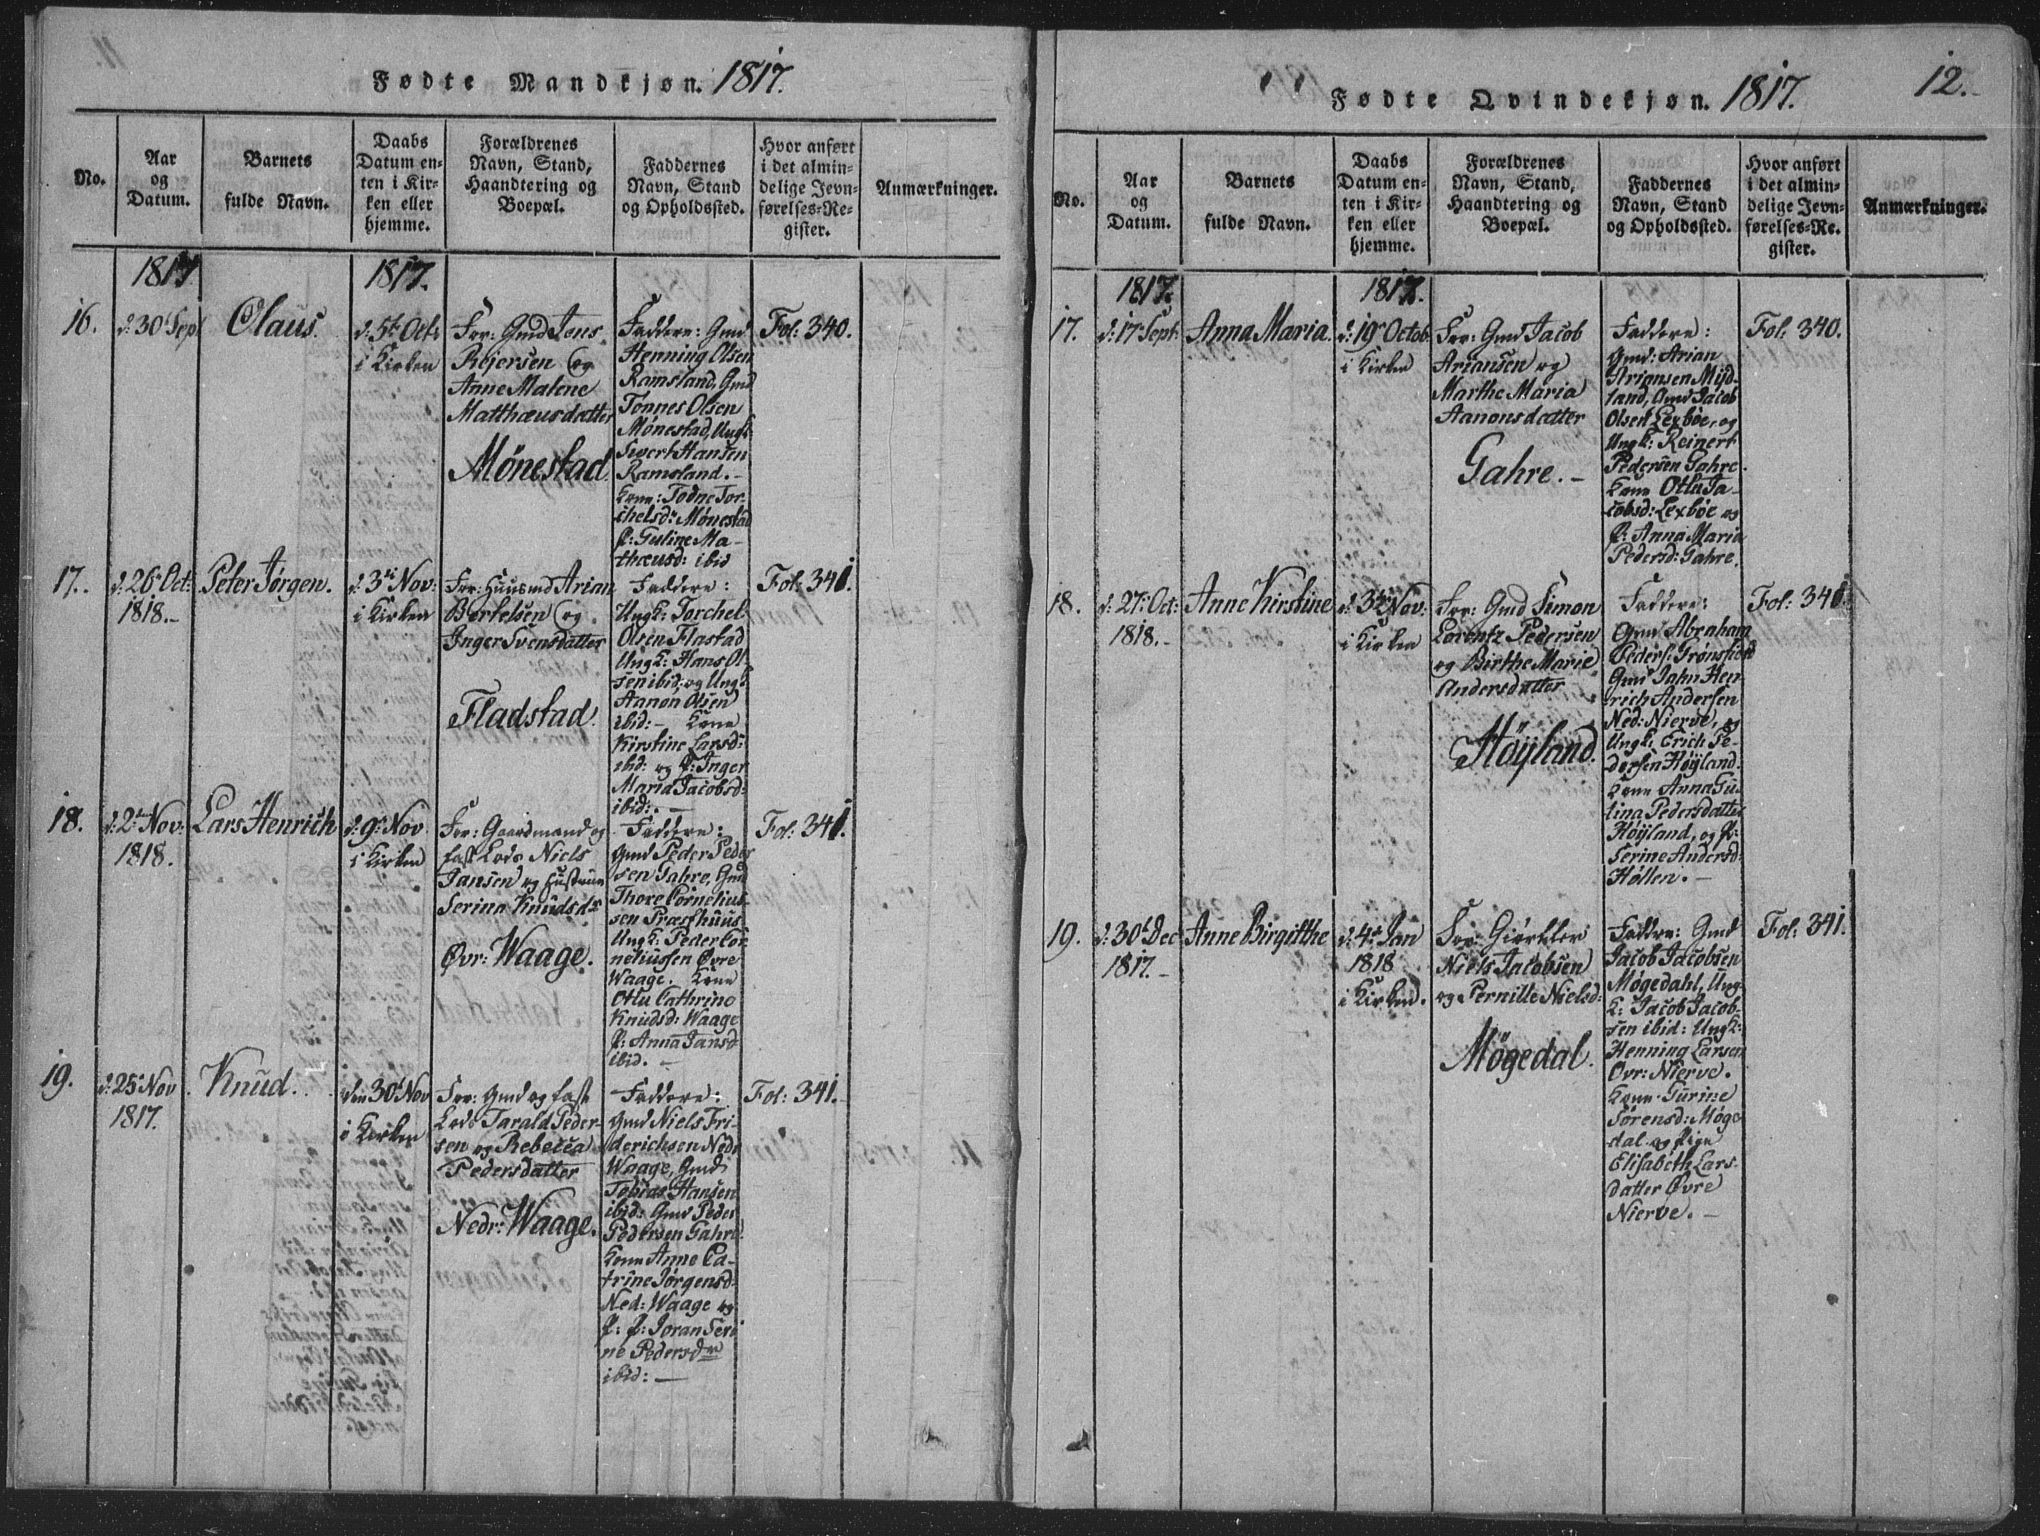 Fødte Mandkjøn. 1817.
No.
Aar
og
Datum.
Barnets
fulde Navn.
Daabs
Datum en-
ten i Kir-
ken eller
hjemme.
Forældrenes
Navn, Stand,
Haandtering og
Boepæl.
Faddernes
Navn, Stand
og Opholdssted.
Hvor anført
i det almin-
delige Jevn-
førelses-Re-
gister.
Anmærkninger.
1817
1817.
16.
d: 30t Sept
Olaus.
d: 5te Octr
i Kirken
For: Gmd Jens
Rejersen og
Anne Malene
Matthæusdatter
Mönestad.
Faddere: Gmd
Henning Olsen
Ramsland, Gmd
Tönnes Olsen
Mønestad, Ungk:
Sivert Hansen
Ramsland. -
Kone: Todne Tor-
chelsdr: Mønestad
P: Guline Ma-
thæusd: ibid
Fol: 340.
17.
d: 26: Oct:
1818.-
Peter Jørgen.
d: 3di Nov:
i Kirken
For: Huusmd Arian
Bertelsen og
Inger Svensdatter
Fladstad.
Faddere:
Ungk: Torchel
Olsen Flastad
Ungk: Hans Ol-
sen ibid, og Ungk
Aanon Olsen
ibid: - Kone
Kirstine Larsd:
ibid: og P: Inger
Maria Jacobsd:
ibid:. -
Fol: 341.
18.
d: 2den Nov:
1818.
Lars Henrich
d: 9: Nov
i Kirken
For: Gaardmand og
fast Lods Niels
Jansen og Hustrue
Serina Knudsdr
Øvr: Waage.
Faddere:
Gmd Peder Peder
sen Gahre, Gmd
Thore Cornelius-
sen Præsthuus
Ungk: Peder Cor
neliussen Øvre
Waage. Kone
Otlu Cathrine
Knudsd: Waage
P: Anna Jansd
ibid. -
Fol: 341.
19.
d: 25: Nov
1817.
Knud.
den 30t Nov
i Kirken
For: Gmd og fast
Lods Tarald Peder-
sen og Rebecca
Pedersdatter
Nedr: Waage.
Faddere:
Gmd Niels Fri-
derichsen Nedr
Waage, Gmd
Tobias Hansen
ibid: Gmd Peder
Pedersen Gahre.
Kone Anne Ca-
trine Jørgensd:
Ned: Waage og
P: P: Joran Seri
ne Pedersdr
ibid: -
Fol: 341.
Fødte Qvindekjøn. 1817.
12.
No.
Aar
og
Datum.
Barnets
fulde Navn.
Daabs
Datum en-
ten i Kir-
ken eller
hjemme.
Forældrenes
Navn, Stand,
Haandtering og
Boepæl.
Faddernes
Navn, Stand
og Opholdssted.
Hvor anført
i det almin-
delige Jevn-
førelses-Re-
gister.
Anmærkninger.
1817.
1817.
17.
d: 17: Sept:
Anna Maria.
d: 19: Octob:
i Kirken
For: Gmd Jacob
Ariansen og
Marthe Maria
Aanonsdatter
Gahre. -
Faddere:
Gmd: Arian
Ariansen Mijd-
land, Gmd Jacob
Olsen Lexbøe, og
Ungk: Reinert
Pedersen Gahre.
Kone Otlu Ja-
cobsd: Lexbøe og
P: Anna Maria
Pedersd: Gahre.
Fol: 340.
18.
d: 27: Oct:
1818. -
Anne Kirstine
d: 3die Nov:
i Kirken
For: Gmd Simon
Lorentz Pedersen
og Birthe Marie
Andersdatter
Höÿland.
Faddere:
Gmd Abraham
Peders: Grønsfiord
Gmd Jahn Hen-
rich Andersen
Ned: Nierve, og
Ungk: Erich Pe-
dersen Høÿland.
Kone Anna Gu-
lina Pedersdatter
Høÿland, og P:
Serine Andersd:
Høllen. -
Fol: 341.
19.
d: 30t Dec
1817. -
Anne Birgitthe
d: 4de Jan
1818
i Kirken.
For: Giørtler
Niels Jacobsen
og Pernille Nielsd:
Møgedal.
Faddere: Gmd
Jacob Jacobsen
Møgedahl, Ung-
k: Jacob Jacob-
sen ibid: Ungk:
Henning Larsen
Øvr: Nierve.
Kone Gurine
Sørensd: Møge
dal og Pige
Elisabeth Lars-
datter Øvre
Nierve. -
Fol: 341.